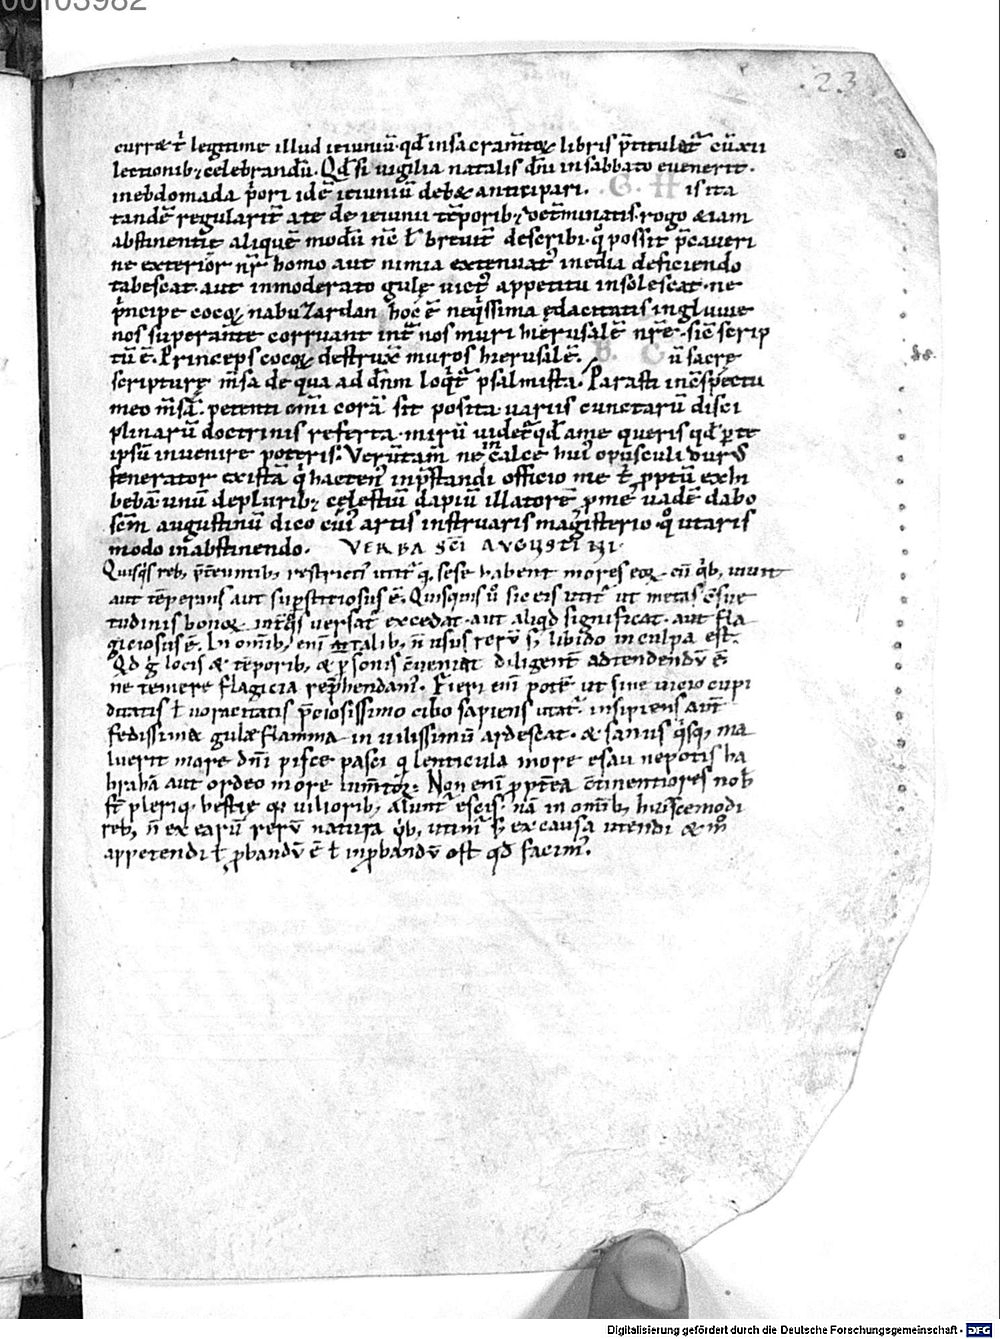 00103982
23
currat ł legitime illud ieiuniū qđ in sacramtoꝝ libris p̄titulat᷑ cū xii
lectionib; celebrandū. Qđ si uigilia natalis dn̄i in sabbato euenerit.
in ebdomada p̄ori idē ieiuniū deb& anticipari. G. H is ita
tandē regularit̄ a te de ieiunii tēporib; det̄minatis. rogo & iam
abstinentie aliquē modū m̄e ł breuit̄ describi. quo possit p̄caueri
ne exterior nr̄ homo aut nimia extenuat᷒ inedia deficiendo
tabescat. aut inmoderato gulę uict᷒ appetitu insolescat. ne
p̄ncipe cocoꝝ nabuzardan hoc ē neq̄ssima ędacitatis ingluuie
nos superante corruant int̄ nos muri hierusalē nr̄e. sic̄ scrip
tū ē. Princeps cocoꝝ destrux̄ muros hierusalē. B. C ū sacrę
scripturę m̄sa de qua ad dn̄m loq̄t᷑ psalmista. Parasti in c̄spectu
meo m̄sā. petenti om̄i corā sit posita uariis cunctarū disci
plinarū doctrinis referta. mirū uidet᷑ qđ a me queris qđ p te
ipsū inuenire poteris. Verūtam̄ ne in calce hui᷒ opusculi durus
fenerator existā q̇ hacten᷒ in p̄standi officio me ł p̄ptū exhi
bebā unū de plurib; celestiū dapiū illatorē p me uadē dabo
sc̄m augustinū dico cui᷒ artis instruaris magisterio quo utaris
modo in abstinendo. VERBA SC̄I AVGVSTINI.
Quisq̇s reb; p̄tereuntib; restricti᷒ utit᷑ q̄ sese habent mores eoꝝ cū q̇b; uiuit
aut tēperans aut sup̄stitiosus ē. Quisquis ū sic eis utit᷑ ut metas c̄sue
tudinis bonoꝝ int̄ quos uersat᷑ excedat. aut aliqđ significat. aut fla
giciosus ē. In om̄ib; eni᷒ talib; n̄ usus rerū s; libido in culpa est.
Qđ g̊ locis & tēporib; & p̱sonis c̄ueniat diligent̄ adtendendū ē
ne temere flagicia rep̄hendam᷒. Fieri eni᷒ potest ut sine uicio cupi
ditatis ł uoracitatis p̄ciosissimo cibo sapiens utat᷑. insipiens aut̄
fedissima gulae flamma in uilissimū ardescat. & sanus q̇sq; ma
luerit more dn̄i pisce pasci q̄ lenticula more esau nepotis ha
brahā aut ordeo more iumtoꝝ. Non eni᷒ p̱pt̄ea c̄tinentiores nob̄
st̄ pleriq; bestie q̄ uiliorib; alunt᷑ escis. nā in om̄ib; huiuscemodi
reb; n̄ ex earū rerū natura q̇b; utim᷒ s; ex causa utendi & m̊
appetendi ł p̱bandū ē ł inp̱bandū est qđ facim᷒.
Digitalisierung gefördert durch die Deutsche Forschungsgemeinschaft - DFG